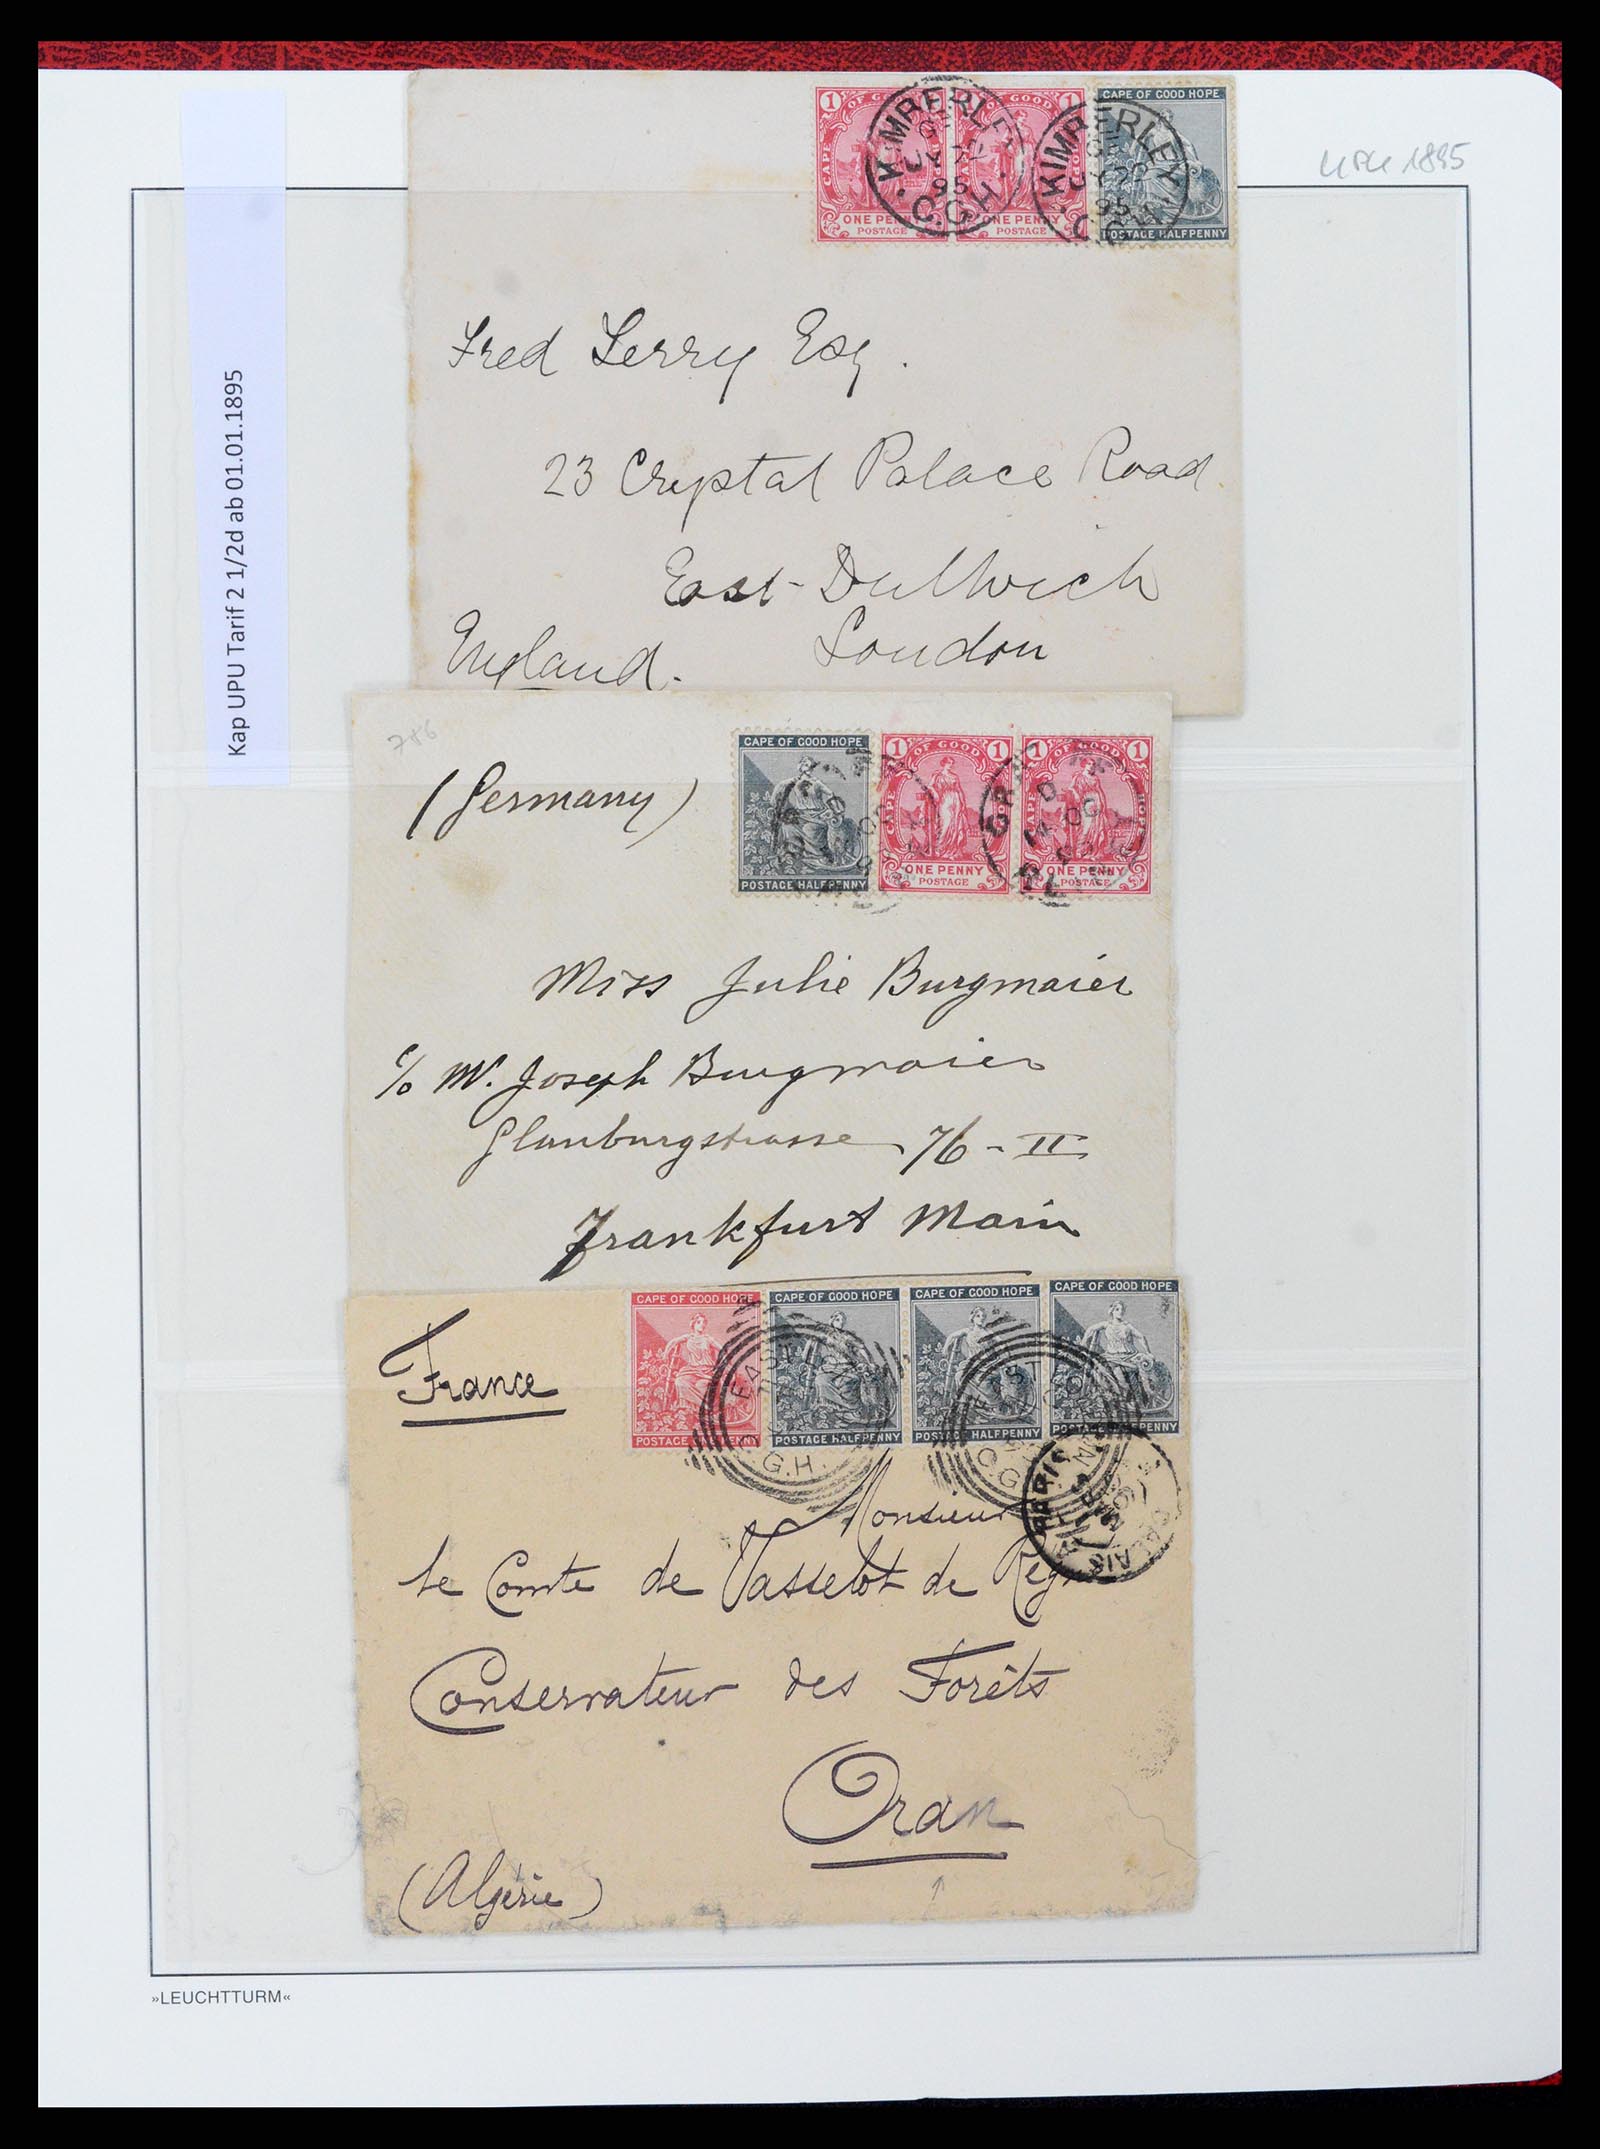 UPU 1895
Kap UPU Tarif 2 1/2d ab 01.01.1895
1 OF GOOD
CAPE
ONE PENNY
POSTAGE
GOOD 1
ONE PENNY
POSTAGE
CAPE OF GOOD HOPE
POSTAGE HALFPENNY
KIMBERLEY
95
C.G.H.
KIMBERLEY
95
Fred Terry Esq.
23 Crystal Palace Road
East-Dulwich
London
England.
786
(Germany)
CAPE OF GOOD HOPE
POSTAGE HALFPENNY
1 OF GOOD 1
CAPE
ONE PENNY
POSTAGE
1 GOOD 1
CAPE
ONE PENNY
POSTAGE
Miss Julie Burgmaier
c/o Mr. Joseph Burgmaier
Glauburgstrasse 76 - II
Frankfurt Main
France
CAPE OF GOOD HOPE
POSTAGE ONE PENNY
CAPE OF GOOD HOPE
POSTAGE HALFPENNY
CAPE OF GOOD HOPE
POSTAGE HALFPENNY
CAPE OF GOOD HOPE
POSTAGE HALFPENNY
EAST
G.H.
EAST
PARIS
CALAIS
Monsieur
le Comte de Vasselot de
Conservateur des Forêts
Oran
(Algérie)
»LEUCHTTURM«